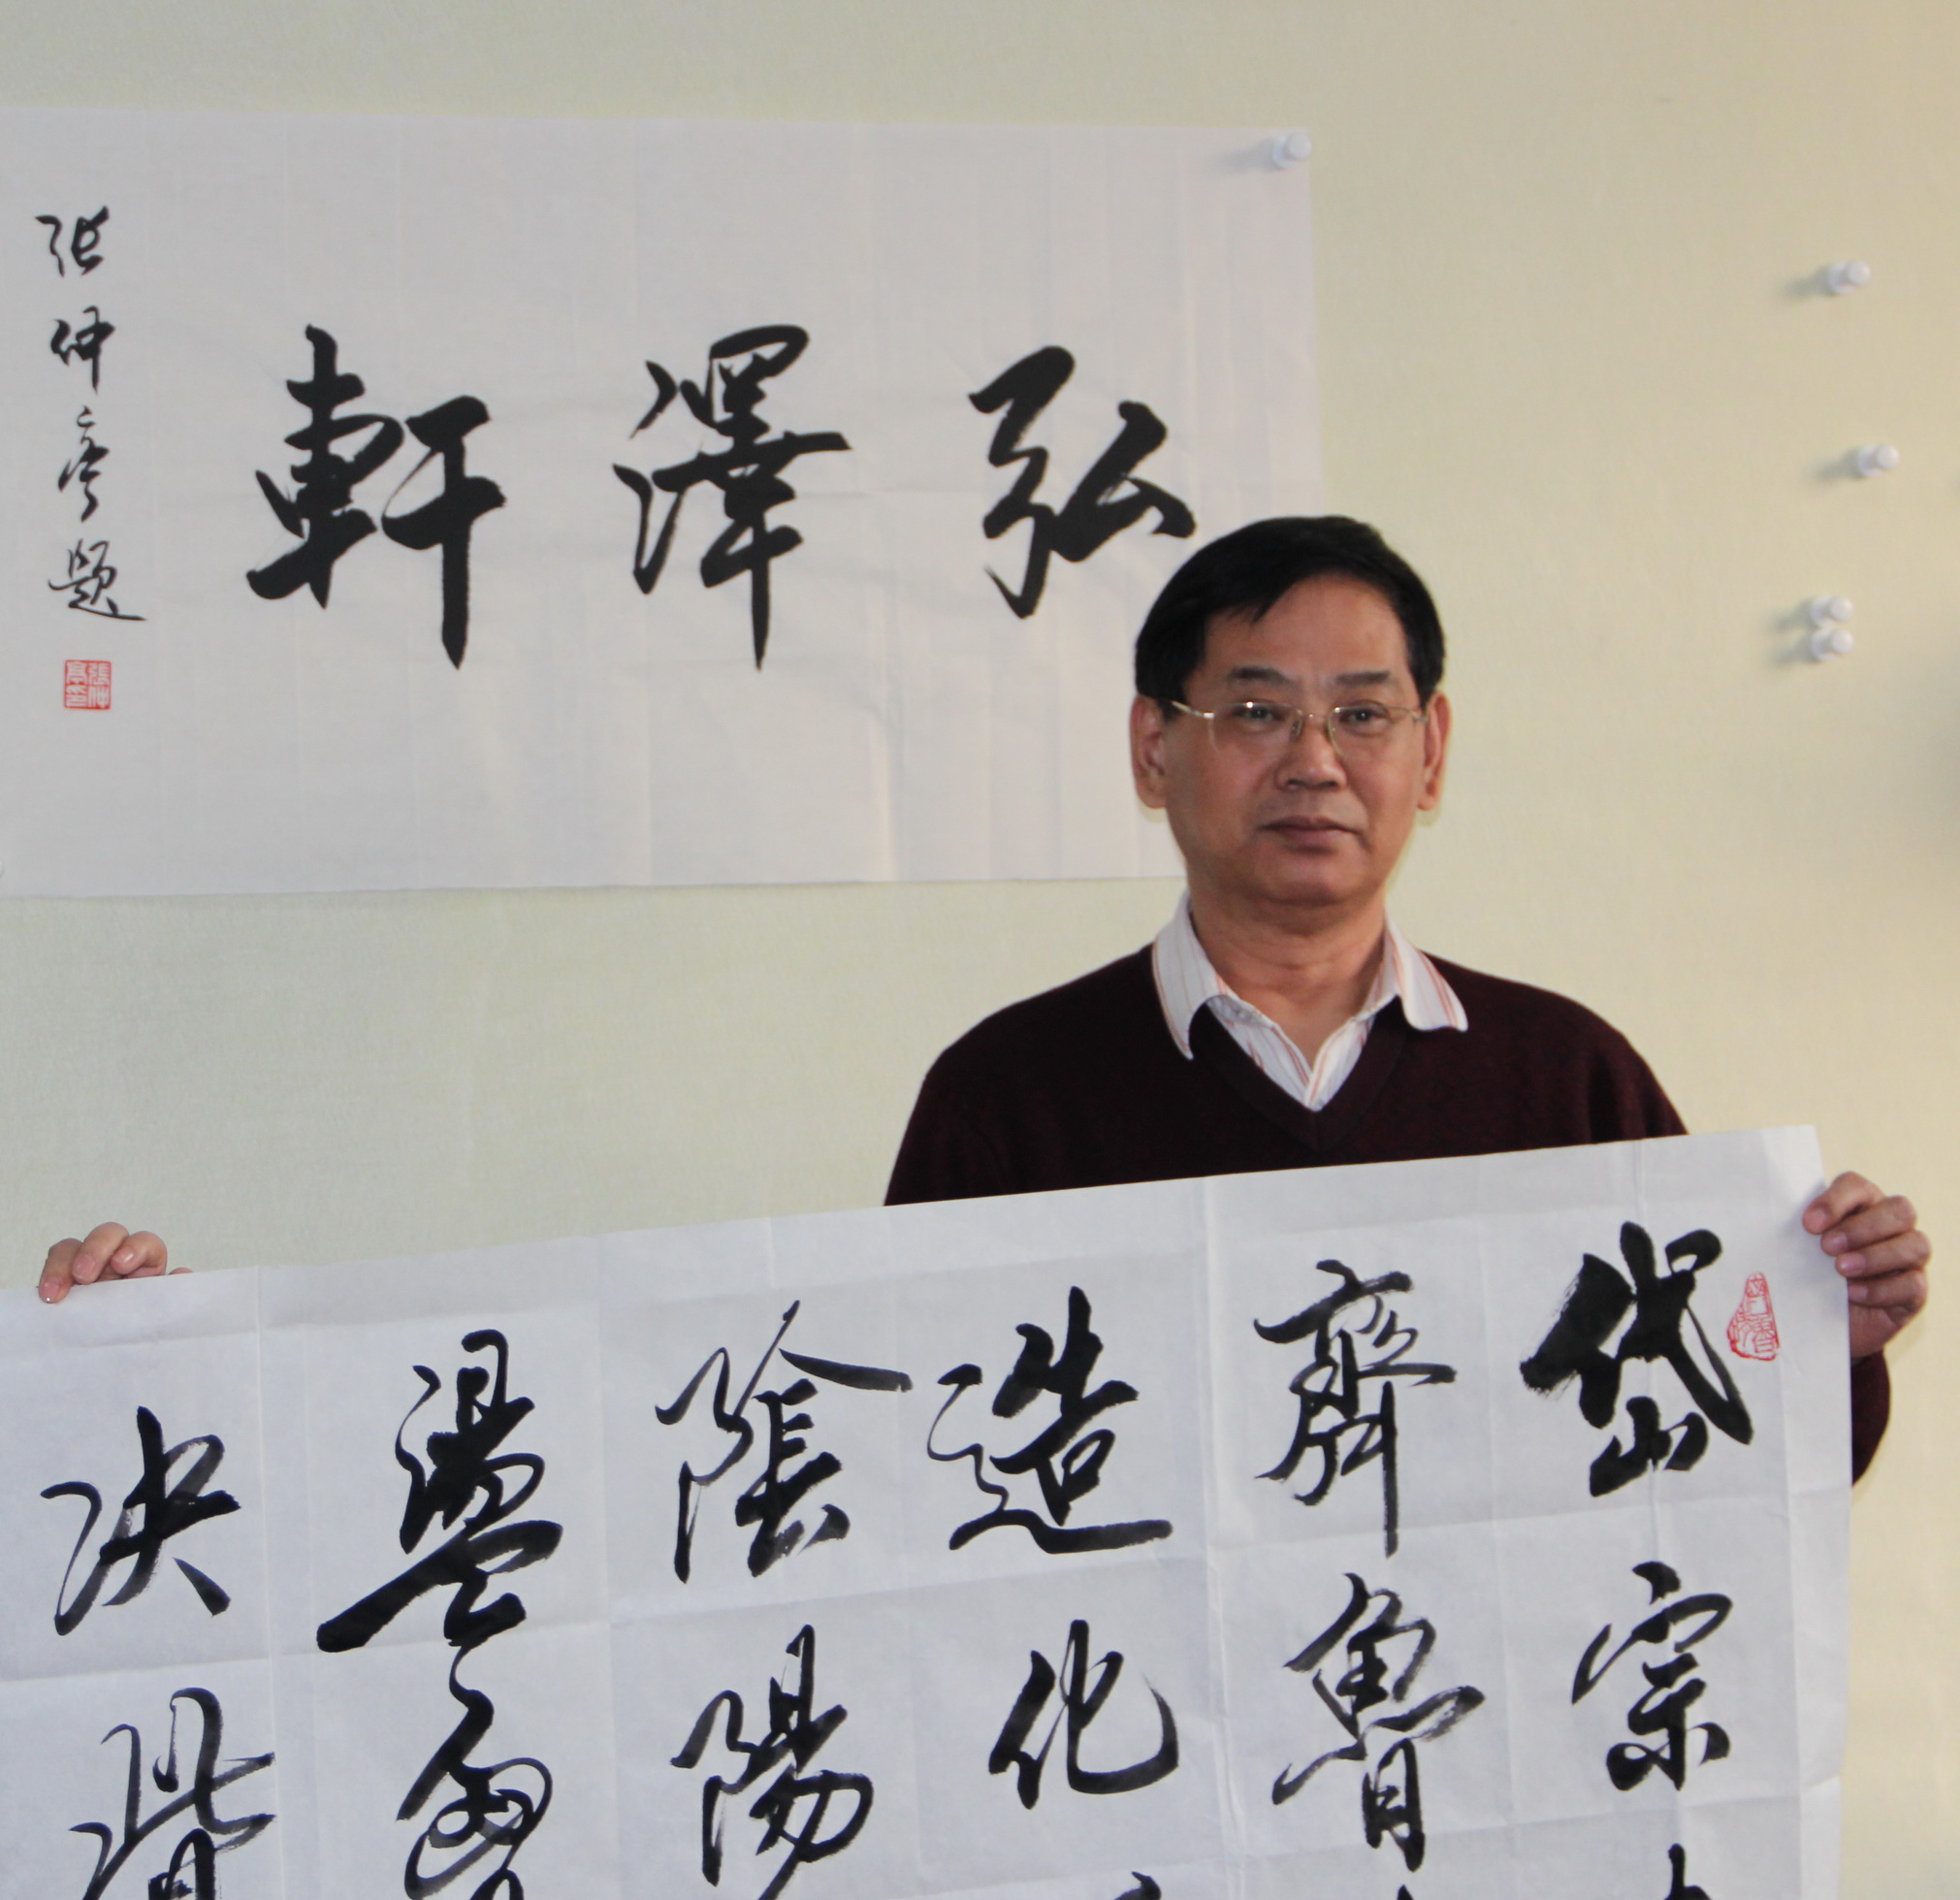 弘澤軒
张仲亭题
張仲亭印
岱宗
齊魯
造化
陰陽
盪
决眥